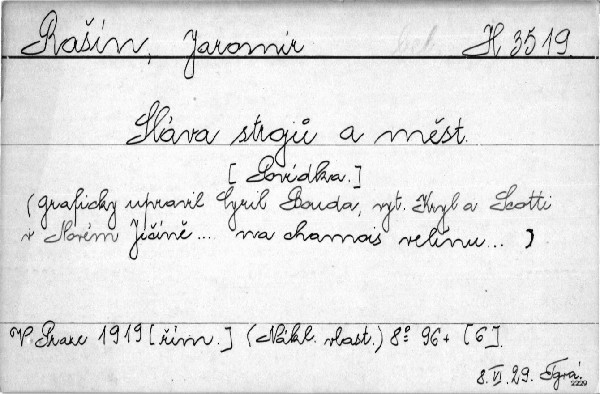 Rašín, Jaromír H 3519.
Sláva strojů a měst.
[Povídka.]
(graficky upravil Cyril Bouda, vyt. Kryl a Scotti
v Novém Jičíně... na chamois velínu... )
V Praze 1919 [řím.] (Nákl. vlast.) 8° 96 + [6].
8. VI. 29.
2229